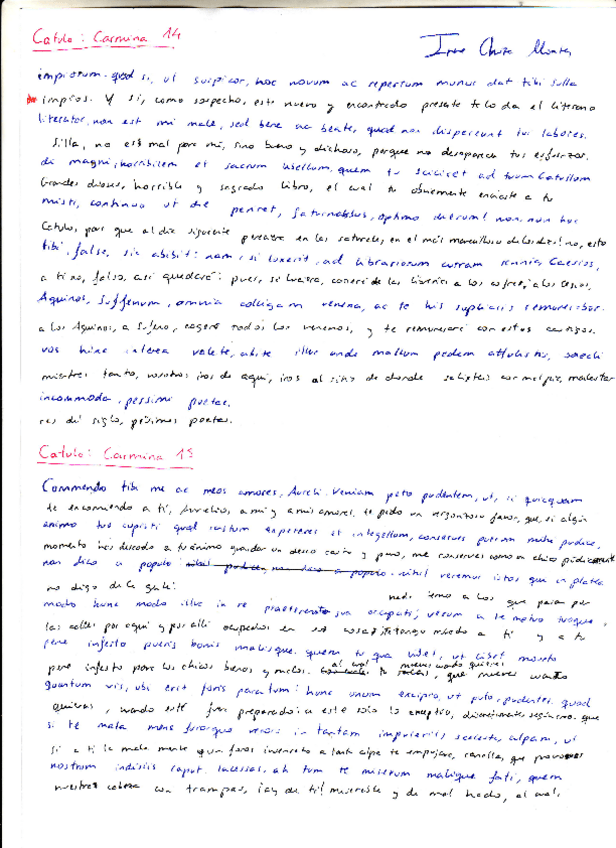 Catulo: Carmina 14
impiorum. quod si, ut suspicor, hoc novum ac repertum munus dat tibi Sulla
impíos. Y si, como sospecho, este nuevo y encontrado presente te lo da el literano
literator, non est mi male, sed bene ac beate, quod non dispereunt tui labores.
Silla, no es mal para mí, sino bueno y dichoso, porque no desaparecen tus esfuerzos.
di magni, horribilem et sacrum libellum, quem tu scilicet ad tuum Catullum
Grandes dioses, horrible y sagrado libro, el cual tu obviamente enviaste a tu
misti, continuo ut die periret, Saturnalibus, optimo dierum! non, non hoc
Catulo, para que al día siguiente en las saturnales, en el más maravilloso de los días! no, esto
tibi, false, sic abibit: nam, si luxerit, ad librariorum curram scrinia, Caesios,
a ti no, falso, así quedará: pues, si luciera, correré de las librerías a los cofres, a los Cesios,
Aquinos, Suffenum, omnia colligam venena, ac te his suppliciis remunerabor.
a los Aquinos, a Sufeno, cogeré todos los venenos, y te remuneraré con estos castigos.
vos hinc interea valete, abite illuc unde malum pedem attulistis, saecli
mientras tanto, vosotros iros de aquí, iros al sitio de donde salisteis con mal pie, malestar
incommoda, pessimi poetae.
res del siglo, pésimos poetas.
Catulo: Carmina 15
Commendo tibi me ac meos amores, Aureli. Veniam peto pudentem, ut, si quicquam
te encomiendo a ti, Aurelio, a mí y a mis amores. te pido un vergonzoso favor, que, si algún
animo tuo cupisti quod castum expeteres et integellum, conserves puerum mihi pudice,
momento has deseado a tu ánimo guardar un deseo casto y puro, me conserves como un chico púdicamente
non dico a populo: nihil veremur istos qui in platea
no digo de la gente: nada temo a los que pasan por
modo huc modo illuc in re praetereunt sua occupati, verum a te metuo tuoque
las calles por aquí y por allí ocupados en sus cosas: tengo miedo a ti y a tu
pene infesto pueris bonis malisque. quem tu qua lubet, ut lubet moveto
pene infesto para los chicos buenos y malos. al cual mueves cuando quieres, que mueves cuanto
quantum vis, ubi erit foris paratum: hunc unum excipio, ut puto, pudenter. quod
quieras, cuando esté fuera preparado: a este solo lo exceptúo, según creo. que
si te mala mens furorque vecors in tantam impulerit, sceleste, culpam, ut
si a ti la mala mente y un furor insensato a tanta culpa te empujase, canalla, que provoques
nostrum insidiis caput lacessas. ah tum te miserum malique fati, quem
nuestra cabeza con trampas, ¡ay de ti! miserable y de mal hado, al cual,